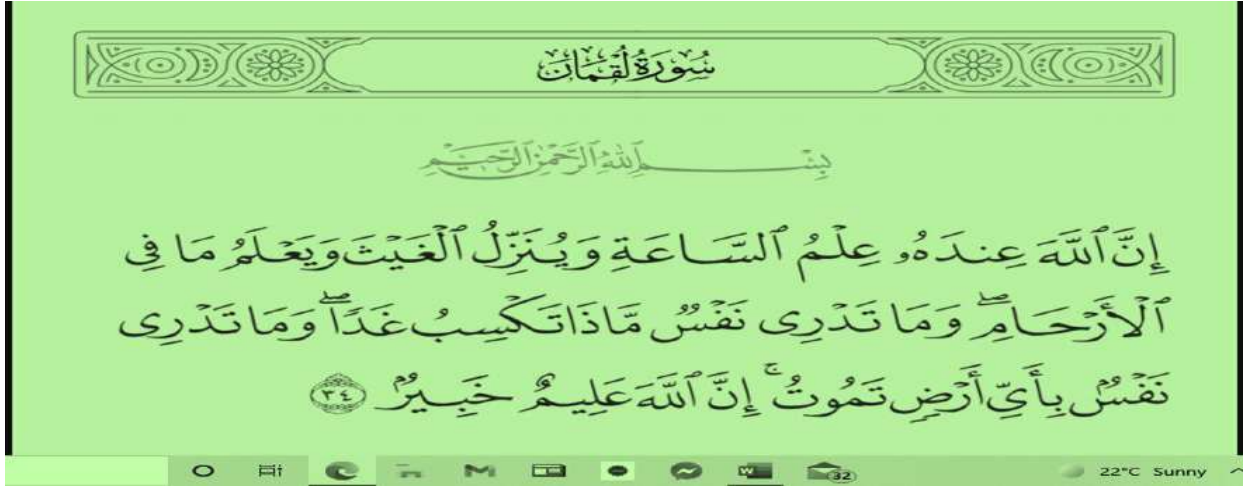 سُورَةُ لُقْمَانَ
بِسْمِ ٱللَّهِ ٱلرَّحْمَٰنِ ٱلرَّحِيمِ
إِنَّ ٱللَّهَ عِندَهُۥ عِلْمُ ٱلسَّاعَةِ وَيُنَزِّلُ ٱلْغَيْثَ وَيَعْلَمُ مَا فِى
ٱلْأَرْحَامِۖ وَمَا تَدْرِى نَفْسٌ مَّاذَا تَكْسِبُ غَدًاۖ وَمَا تَدْرِى
نَفْسٌۢ بِأَىِّ أَرْضٍ تَمُوتُۚ إِنَّ ٱللَّهَ عَلِيمٌ خَبِيرٌۢ ٣٤
32 22°C Sunny